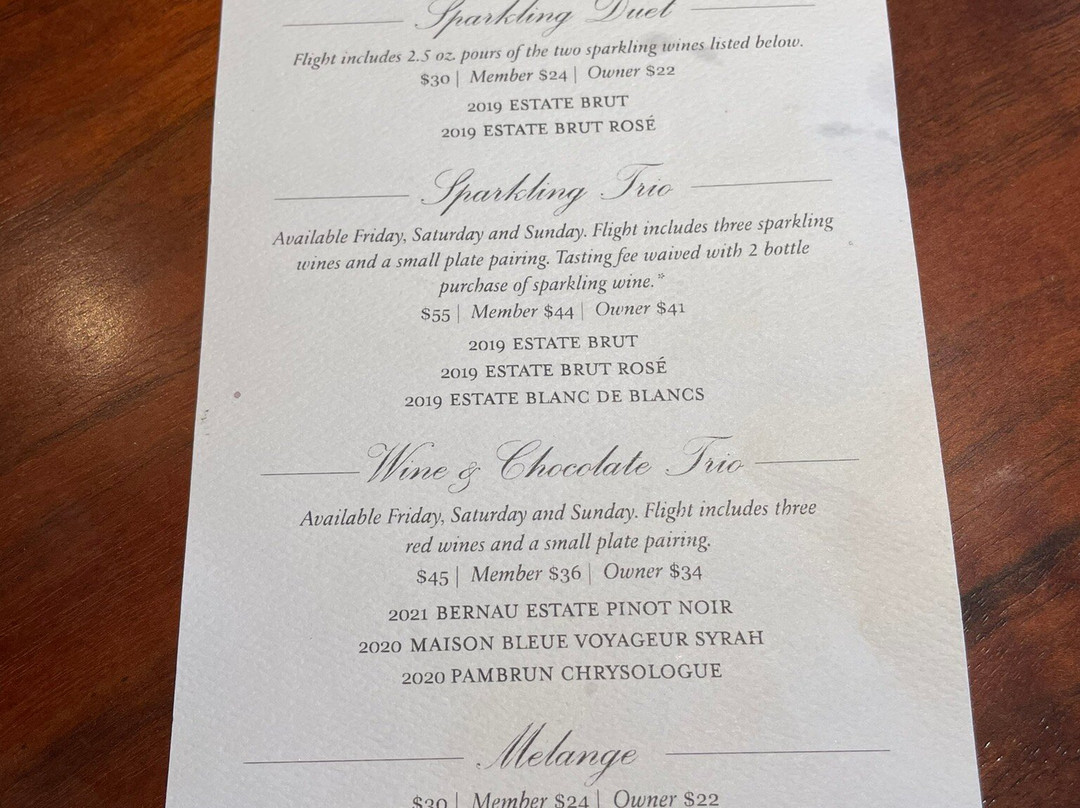 Sparkling Duet
Flight includes 2.5 oz. pours of the two sparkling wines listed below.
$30 | Member $24 | Owner $22
2019 ESTATE BRUT
2019 ESTATE BRUT ROSÉ
Sparkling Trio
Available Friday, Saturday and Sunday. Flight includes three sparkling
wines and a small plate pairing. Tasting fee waived with 2 bottle
purchase of sparkling wine.*
$55 | Member $44 | Owner $41
2019 ESTATE BRUT
2019 ESTATE BRUT ROSÉ
2019 ESTATE BLANC DE BLANCS
Wine & Chocolate Trio
Available Friday, Saturday and Sunday. Flight includes three
red wines and a small plate pairing.
$45 | Member $36 | Owner $34
2021 BERNAU ESTATE PINOT NOIR
2020 MAISON BLEUE VOYAGEUR SYRAH
2020 PAMBRUN CHRYSOLOGUE
Melange
$30 | Member $24 | Owner $22